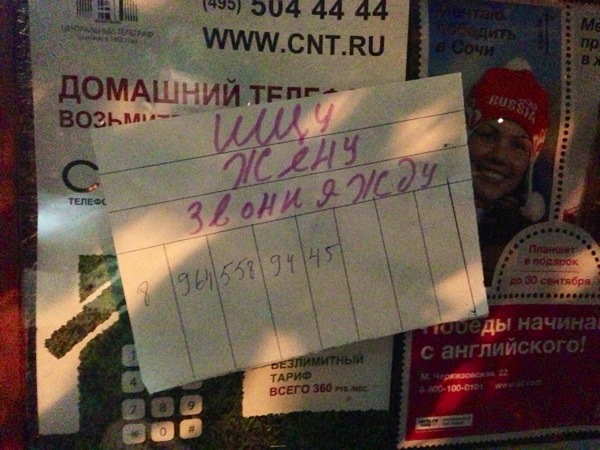 (495) 504 44 44
ЦЕНТРАЛЬНЫЙ ТЕЛЕГРАФ
WWW.CNT.RU
ДОМАШНИЙ
ищу
жену
звони я жду
8 964 558 94 45
1
4
7 8 9
* 0 #
БЕЗЛИМИТНЫЙ
ТАРИФ
ВСЕГО 360 РУБ./МЕС.
победить
в Сочи
RUSSIA
Планшет
в подарок
до 30 сентября
Победы
с английского!
М. Черкизовская, 22
8-800-100-0101